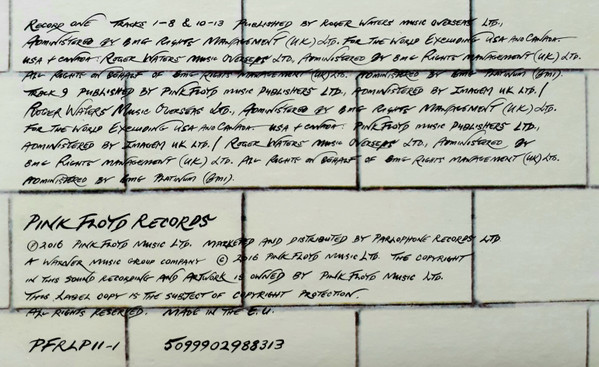 Record One Tracks 1-8 & 10-13 Published by Roger Waters Music Overseas Ltd.,
Administered by BMG Rights Management (UK) Ltd. For The World Excluding USA and Canada.
USA & Canada: Roger Waters Music Overseas Ltd, Administered by BMG Rights Management (UK) Ltd.
All Rights on Behalf of BMG Rights Management (UK) Ltd. Administered by BMG Platinum (BMI).
Track 9 Published by Pink Floyd Music Publishers Ltd., Administered by Imagem UK Ltd./
Roger Waters Music Overseas Ltd., Administered by BMG Rights Management (UK) Ltd.
For The World Excluding USA and Canada. USA & Canada: Pink Floyd Music Publishers Ltd.,
Administered by Imagem UK Ltd./ Roger Waters Music Overseas Ltd., Administered by
BMG Rights Management (UK) Ltd. All Rights on Behalf of BMG Rights Management (UK) Ltd.
Administered by BMG Platinum (BMI).
Pink Floyd Records
℗2016 Pink Floyd Music Ltd. Marketed and Distributed by Parlophone Records Ltd
A Warner Music Group Company © 2016 Pink Floyd Music Ltd. The copyright
in this sound recording and artwork is owned by Pink Floyd Music Ltd.
This label copy is the subject of copyright protection.
All rights reserved. Made in the E.U.
PFRLP11-1 5099902988313